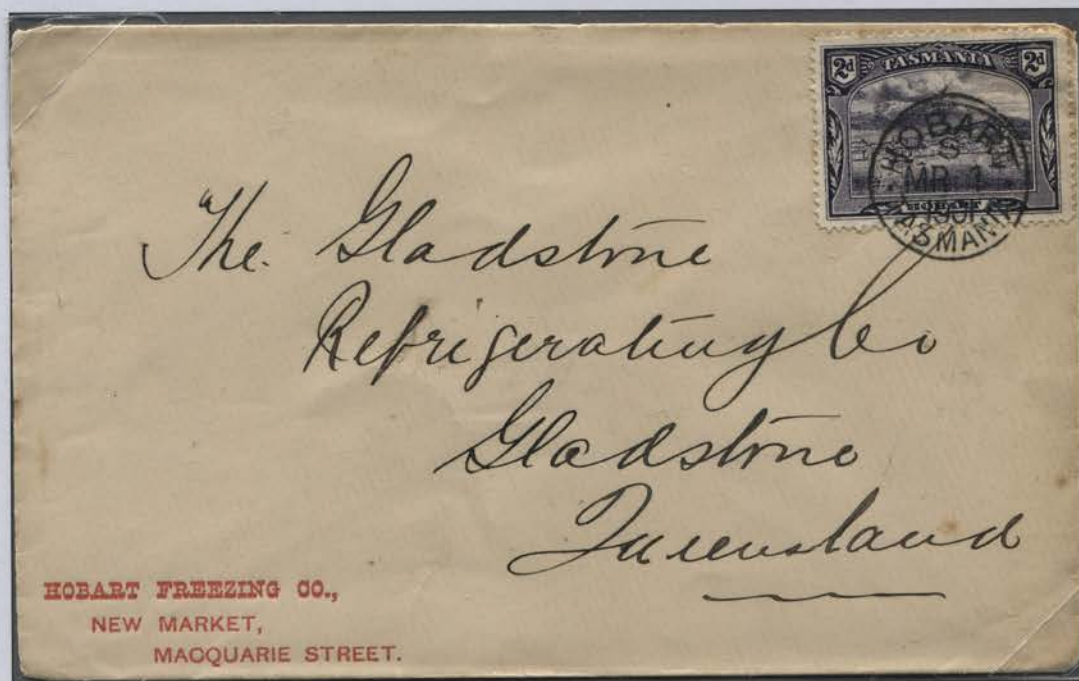 2d TASMANIA 2d
HOBART
S
MR 1
1901
TASMANIA
HOBART
The. Gladstone
Refrigerating Co
Gladstone
Queensland
HOBART FREEZING CO.,
NEW MARKET,
MACQUARIE STREET.